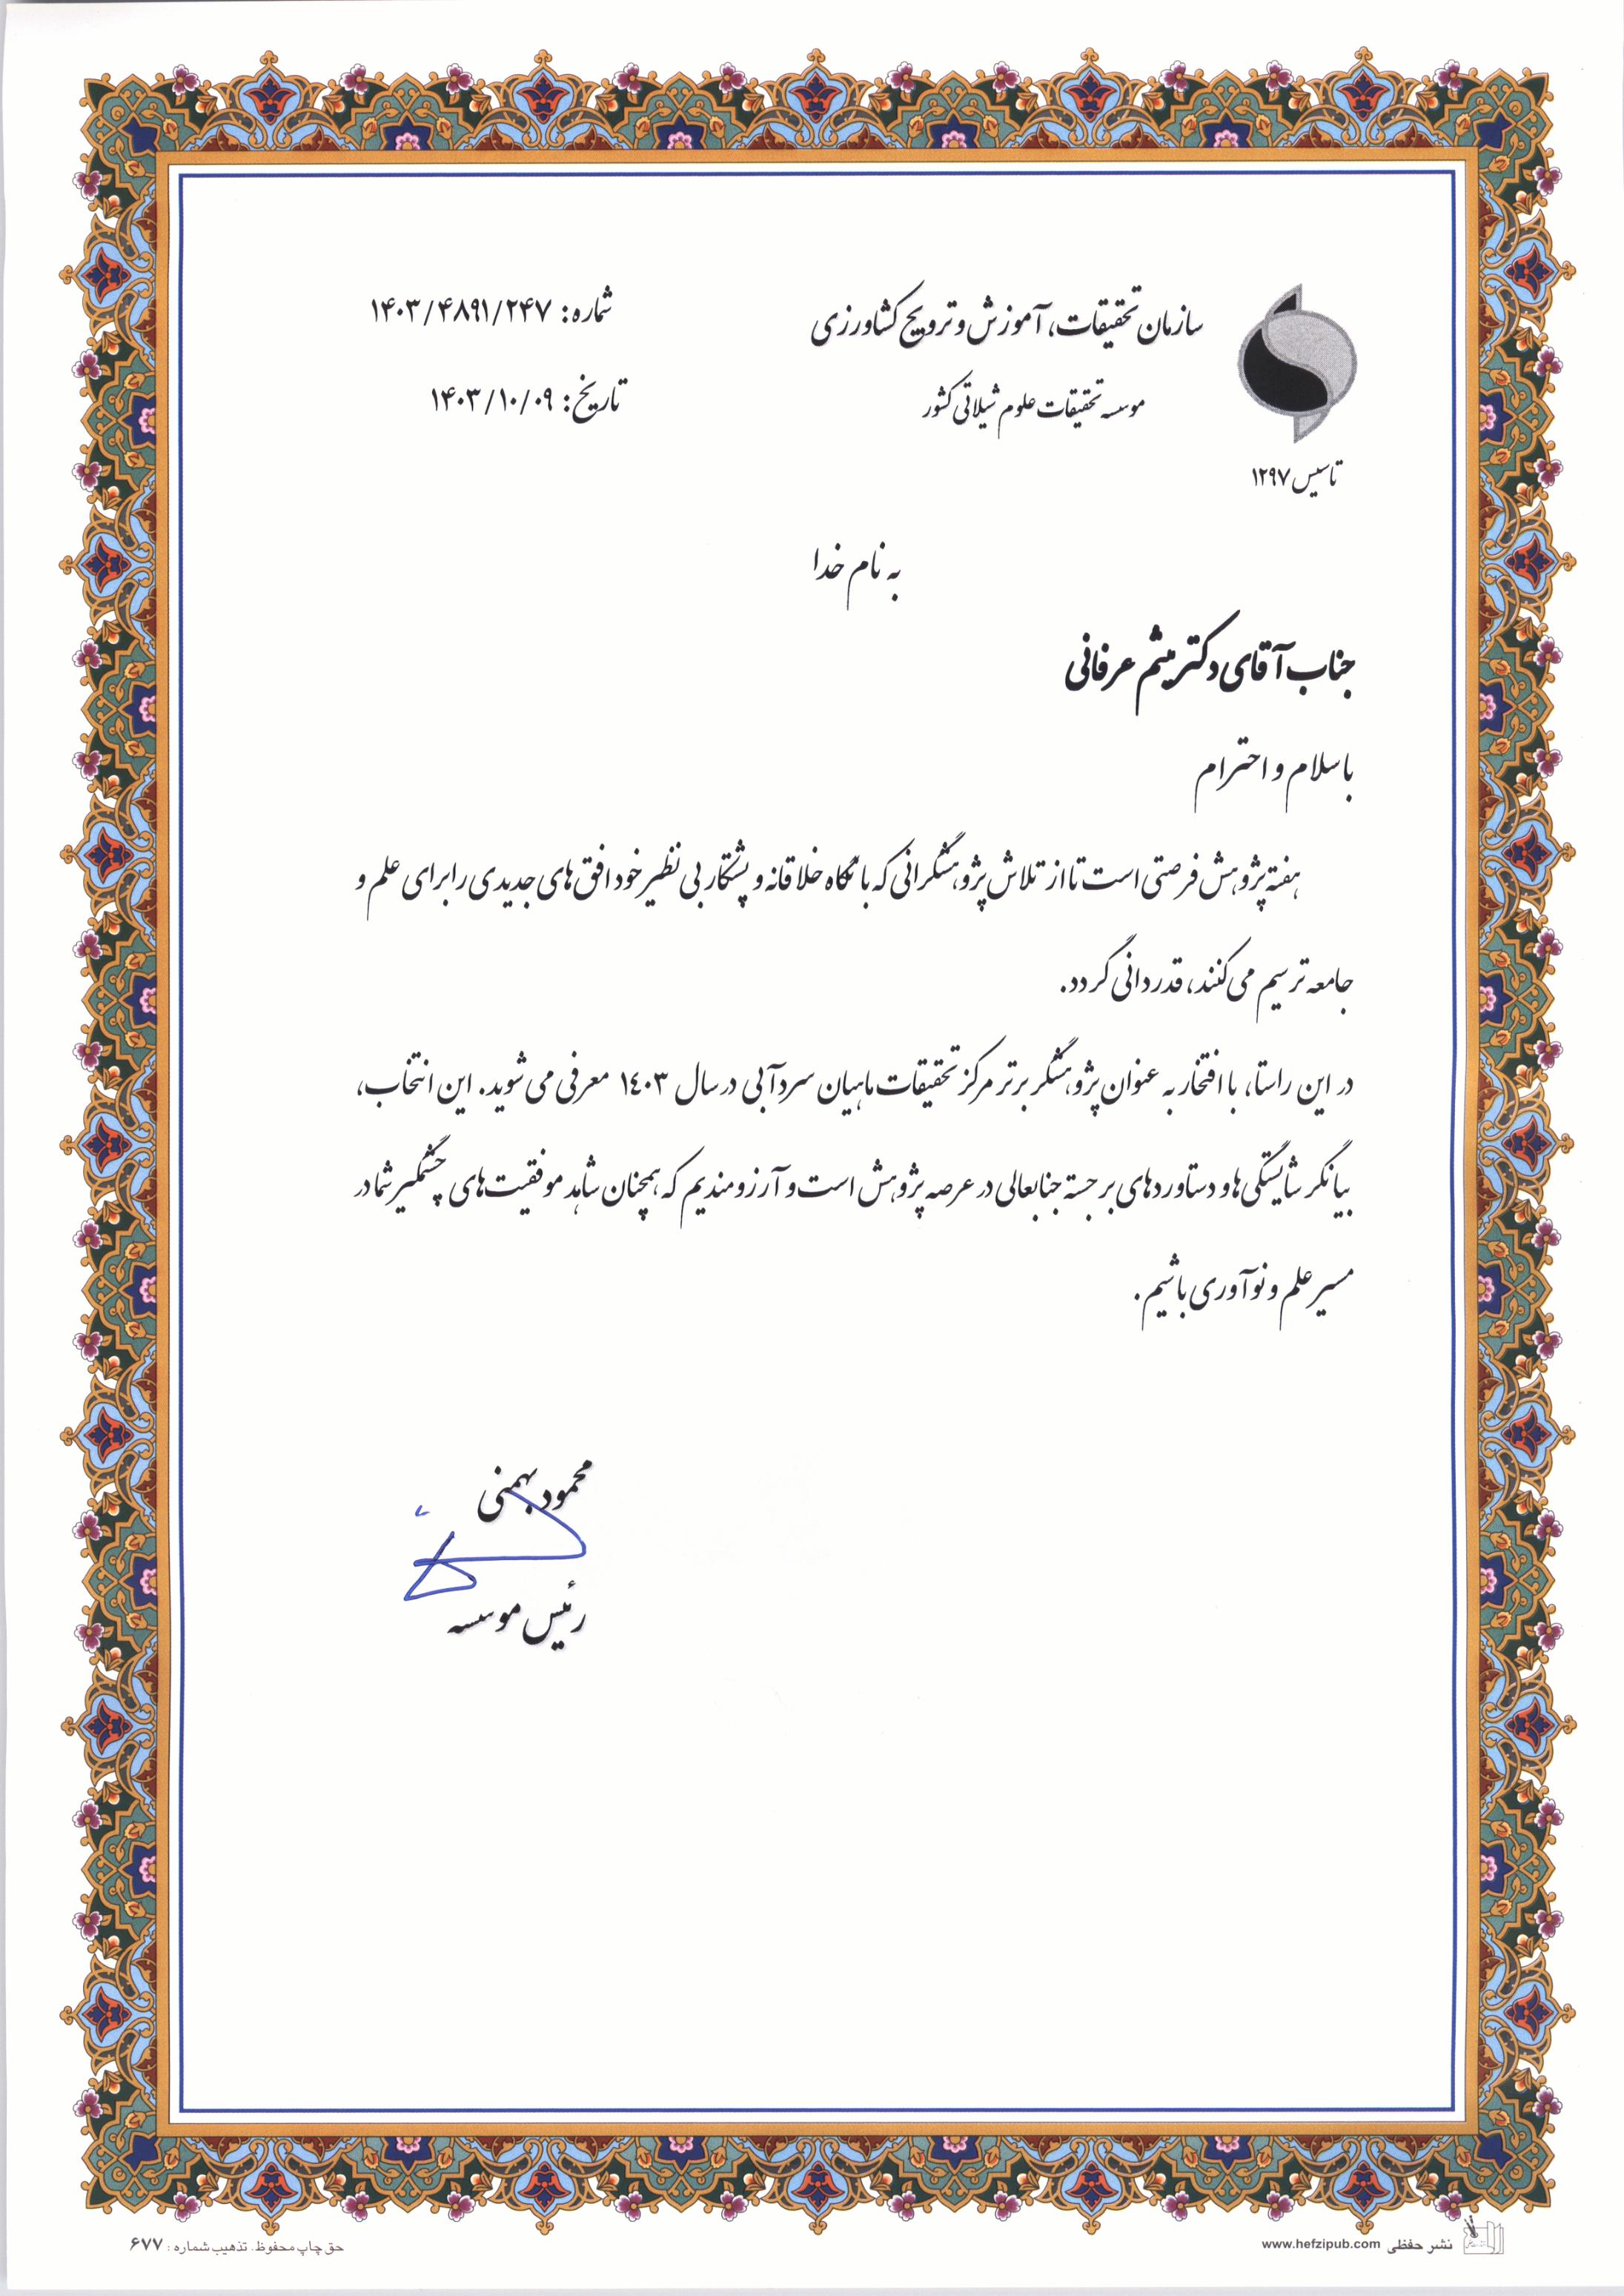 سازمان تحقیقات، آموزش و ترویج کشاورزی
موسسه تحقیقات علوم شیلاتی کشور
تاسیس ۱۲۹۷
شماره: ۱۴۰۳/۴۸۹۱/۲۴۷
تاریخ: ۱۴۰۳/۱۰/۰۹
به نام خدا
جناب آقای دکتر میثم عرفانی
با سلام و احترام
هفته پژوهش فرصتی است تا از تلاش پژوهشگرانی که با نگاه خلاقانه و پشتکار بی نظیر خود افق های جدیدی را برای علم و
جامعه ترسیم می‌کنند، قدردانی گردد.
در این راستا، با افتخار به عنوان پژوهشگر برتر مرکز تحقیقات ماهیان سردآبی در سال ۱۴۰۳ معرفی می شوید. این انتخاب،
بیانگر شایستگی ها و دستاوردهای برجسته جنابعالی در عرصه پژوهش است و آرزومندیم که همچنان شاهد موفقیت های چشمگیر شما در
مسیر علم و نوآوری باشیم.
محمود بهمنی
رئیس موسسه
نشر حفظی www.hefzipub.com
حق چاپ محفوظ. تذهیب شماره : ۶۷۷